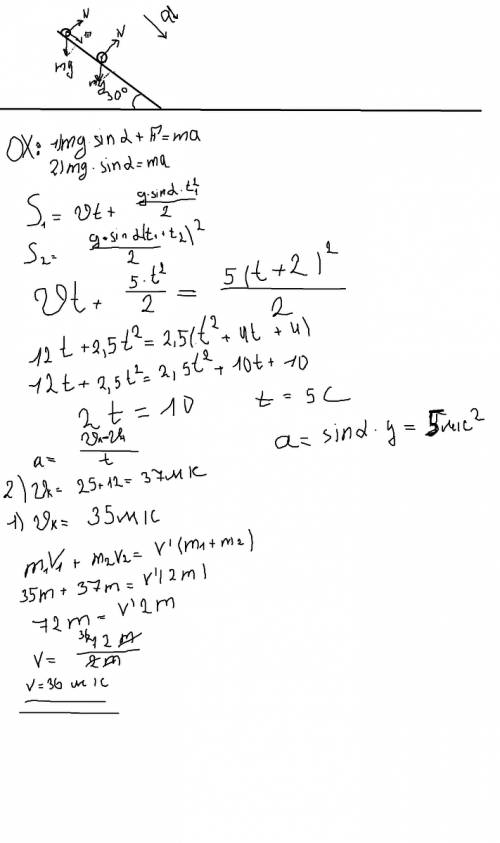 N
a
N
mg
mg
30°
OX: 1) mg·sinα + F = ma
2) mg·sinα = ma
S₁ = υt + g·sinα·t₁²/2
S₂ = g·sinα(t₁+t₂)²/2
υt + 5·t²/2 = 5(t+2)²/2
12t + 2,5t² = 2,5(t² + 4t + 4)
12t + 2,5t² = 2,5t² + 10t + 10
2t = 10 t = 5 С
a = υк-υн/t a = sinα·g = 5м/с²
2) υк = 25+12 = 37м/с
1) υк = 35м/с
m₁V₁ + m₂V₂ = V'(m₁+m₂)
35m + 37m = V'(2m)
72m = V'2m
V = 72m/2m 36
V = 36 м/с